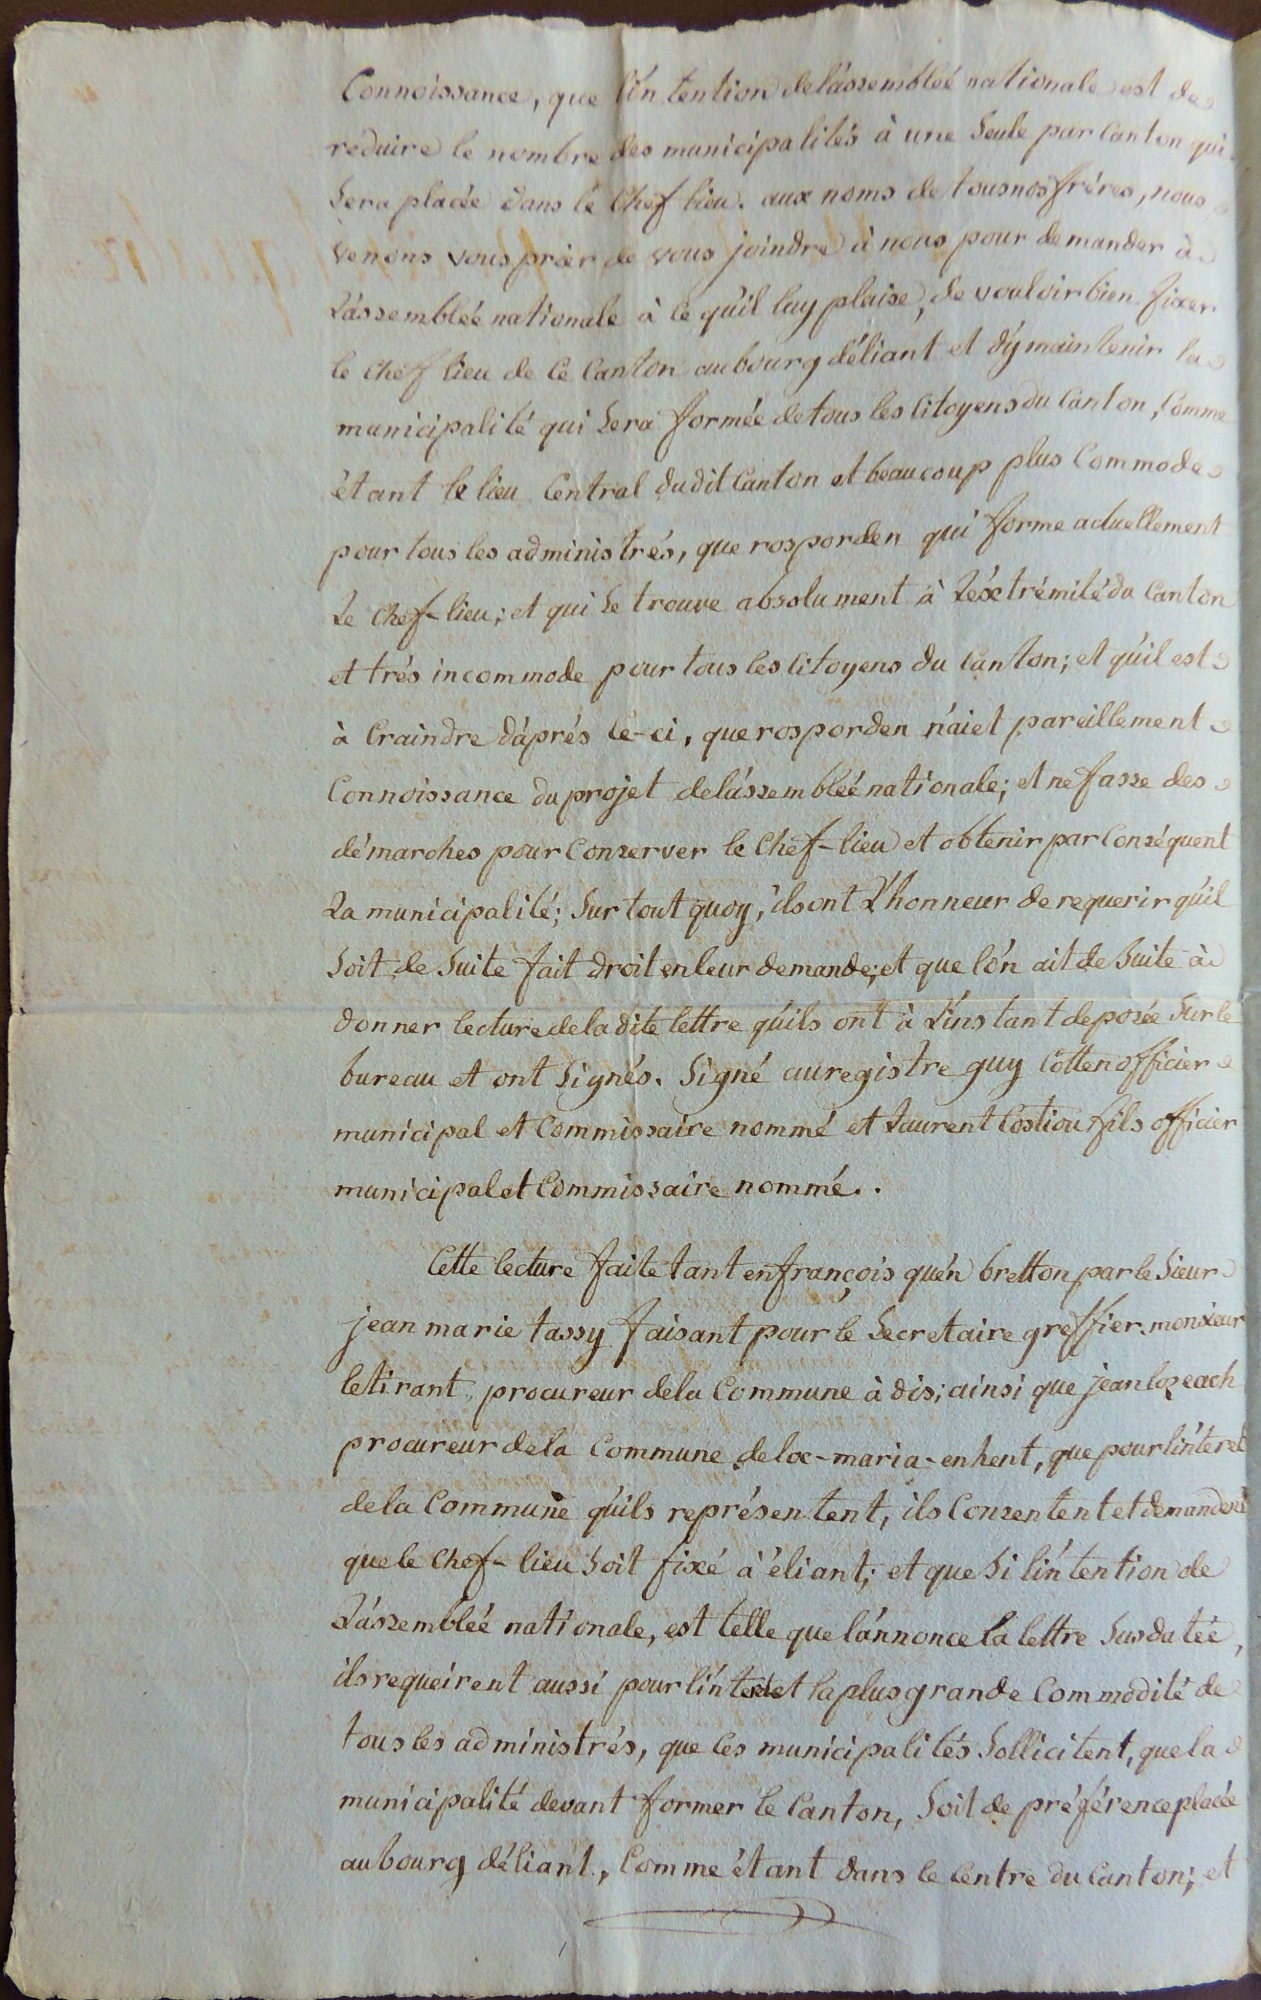 Connoissance, que l'intention de l'assembleé nationale est de
reduire le nombre des municipalités à une Seule par Canton qui
Sera placée dans le Chef lieu. aux noms de tous nos fréres, nous
venons vous prier de vous joindre à nous pour demander à
L'assemblée nationale à ce qu'il luy plaise, de vouloir bien fixer
le chef lieu de ce Canton au bourg d'éliant et d'y maintenir la
municipalité qui Sera formée de tous les Citoyens du Canton, Comme
étant le lieu Central du dit Canton et beaucoup plus Commode
pour tous les administrés, que rosporden qui forme actuellement
Le Chef-lieu; et qui Se trouve absolument à L'extrémité du Canton
et trés incommode pour tous les Citoyens du Canton; et qu'il est
à Craindre d'aprés Ce-ci, que rosporden n'aiet pareillement
Connoissance du projet de l'assembleé nationale; et ne fasse des
démarches pour Conserver le Chef-lieu et obtenir par Conséquent
La municipalité; Sur tout quoy, ils ont L'honneur de requerir qu'il
Soit de Suite fait droit en leur demande; et que l'on ait de Suite à
donner lecture de la dite lettre qu'ils ont à L'instant deposée Sur le
bureau et ont Signés. Signé au registre guy Cotten officier
municipal et Commissaire nommé et Laurent Costiou fils officier
municipal et Commissaire nommé..
Cette lecture faite tant en françois qu'en bretton par le Sieur
jean marie tassy faisant pour le Secretaire greffier. monsieur
letirant, procureur de la Commune à dis; ainsi que jean lozeach
procureur de la Commune de loc-maria-enhent, que pour l'interet
de la Commune qu'ils représentent, ils Consentent et demandent
que le Chef-lieu Soit fixé à éliant; et que Si l'intention de
L'assembleé nationale, est telle que l'annonce la lettre Susdateé,
ils requeirent aussi pour l'interet la plus grande Commodité de
tous les administrés, que les municipalités Sollicitent, que la
municipalité devant former le Canton, Soit de préférence placée
au bourg d'éliant, Comme étant dans le Centre du Canton; et